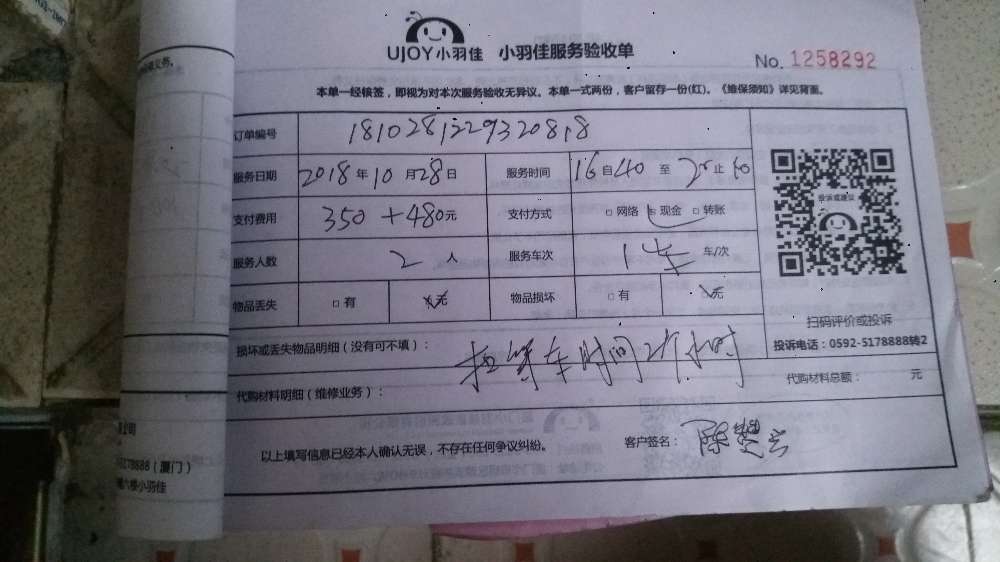 UJOY小羽佳 小羽佳服务验收单
No. 1258292
本单一经核签，即视为对本次服务验收无异议。本单一式两份，客户留存一份(红)。《维保须知》详见背面。
订单编号 1810281229320818
服务日期 2018年10月28日 服务时间 16自40至20止40
支付费用 350+480元 支付方式 □网络 □现金 □转账
服务人数 2人 服务车次 1车 车/次
物品丢失 □有 □无 物品损坏 □有 □无
投诉或建议
扫码评价或投诉
投诉电话：0592-5178888转2
损坏或丢失物品明细（没有可不填）：
等车时间2个小时
代购材料明细（维修业务）： 代购材料总额： 元
以上填写信息已经本人确认无误，不存在任何争议纠纷。 客户签名：
公司
5178888（厦门）
楼六楼小羽佳